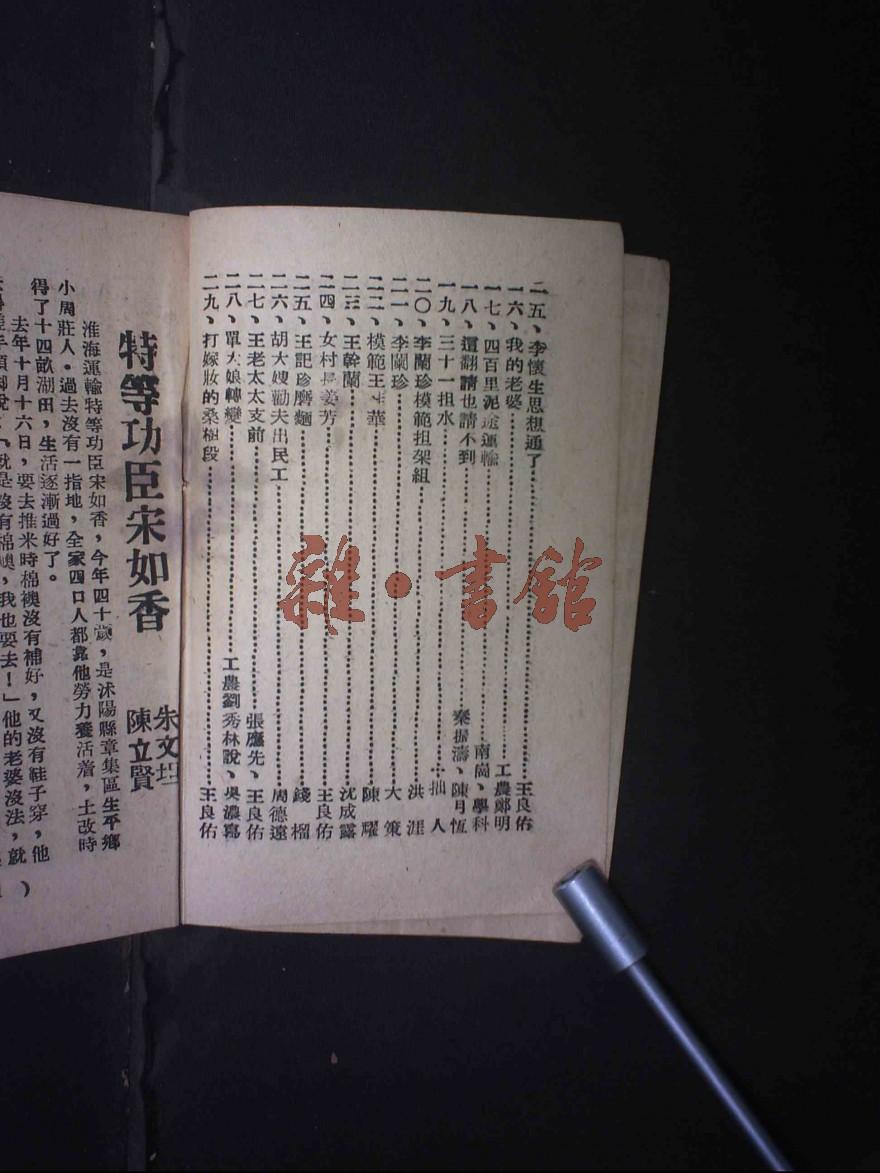 二五、李懷生思想通了……王良佑
一六、我的老婆……工農鄭明
一七、四百里泥途運輸……南崗、學科
一八、還翻請也請不到……秦振濤、陳月恆
一九、三十一担水……拙人
二〇、李蘭珍模範担架組……洪涯
二一、李蘭珍……大策
二二、模範王 華……陳耀
二三、王幹蘭……沈成露
二四、女村長姜芳……王良佑
二五、王記珍磨麵……錢榴
二六、胡大嫂勸夫出民工……周德遠
二七、王老太太支前……張應先、王良佑
二八、單大娘轉變……工農劉秀林說、吳濃寫
二九、打嫁妝的桑樹段……王良佑
雜·書館
特等功臣宋如香
朱文坦
陳立賢
淮海運輸特等功臣宋如香，今年四十歲，是沭陽縣章集區生平鄉
小周莊人。過去沒有一指地，全家四口人都靠他勞力養活着，土改時
得了十四畝湖田，生活逐漸過好了。
去年十月十六日，要去推米時棉襖沒有補好，又沒有鞋子穿，他
是沒有棉襖，我也要去！」他的老婆沒法，就